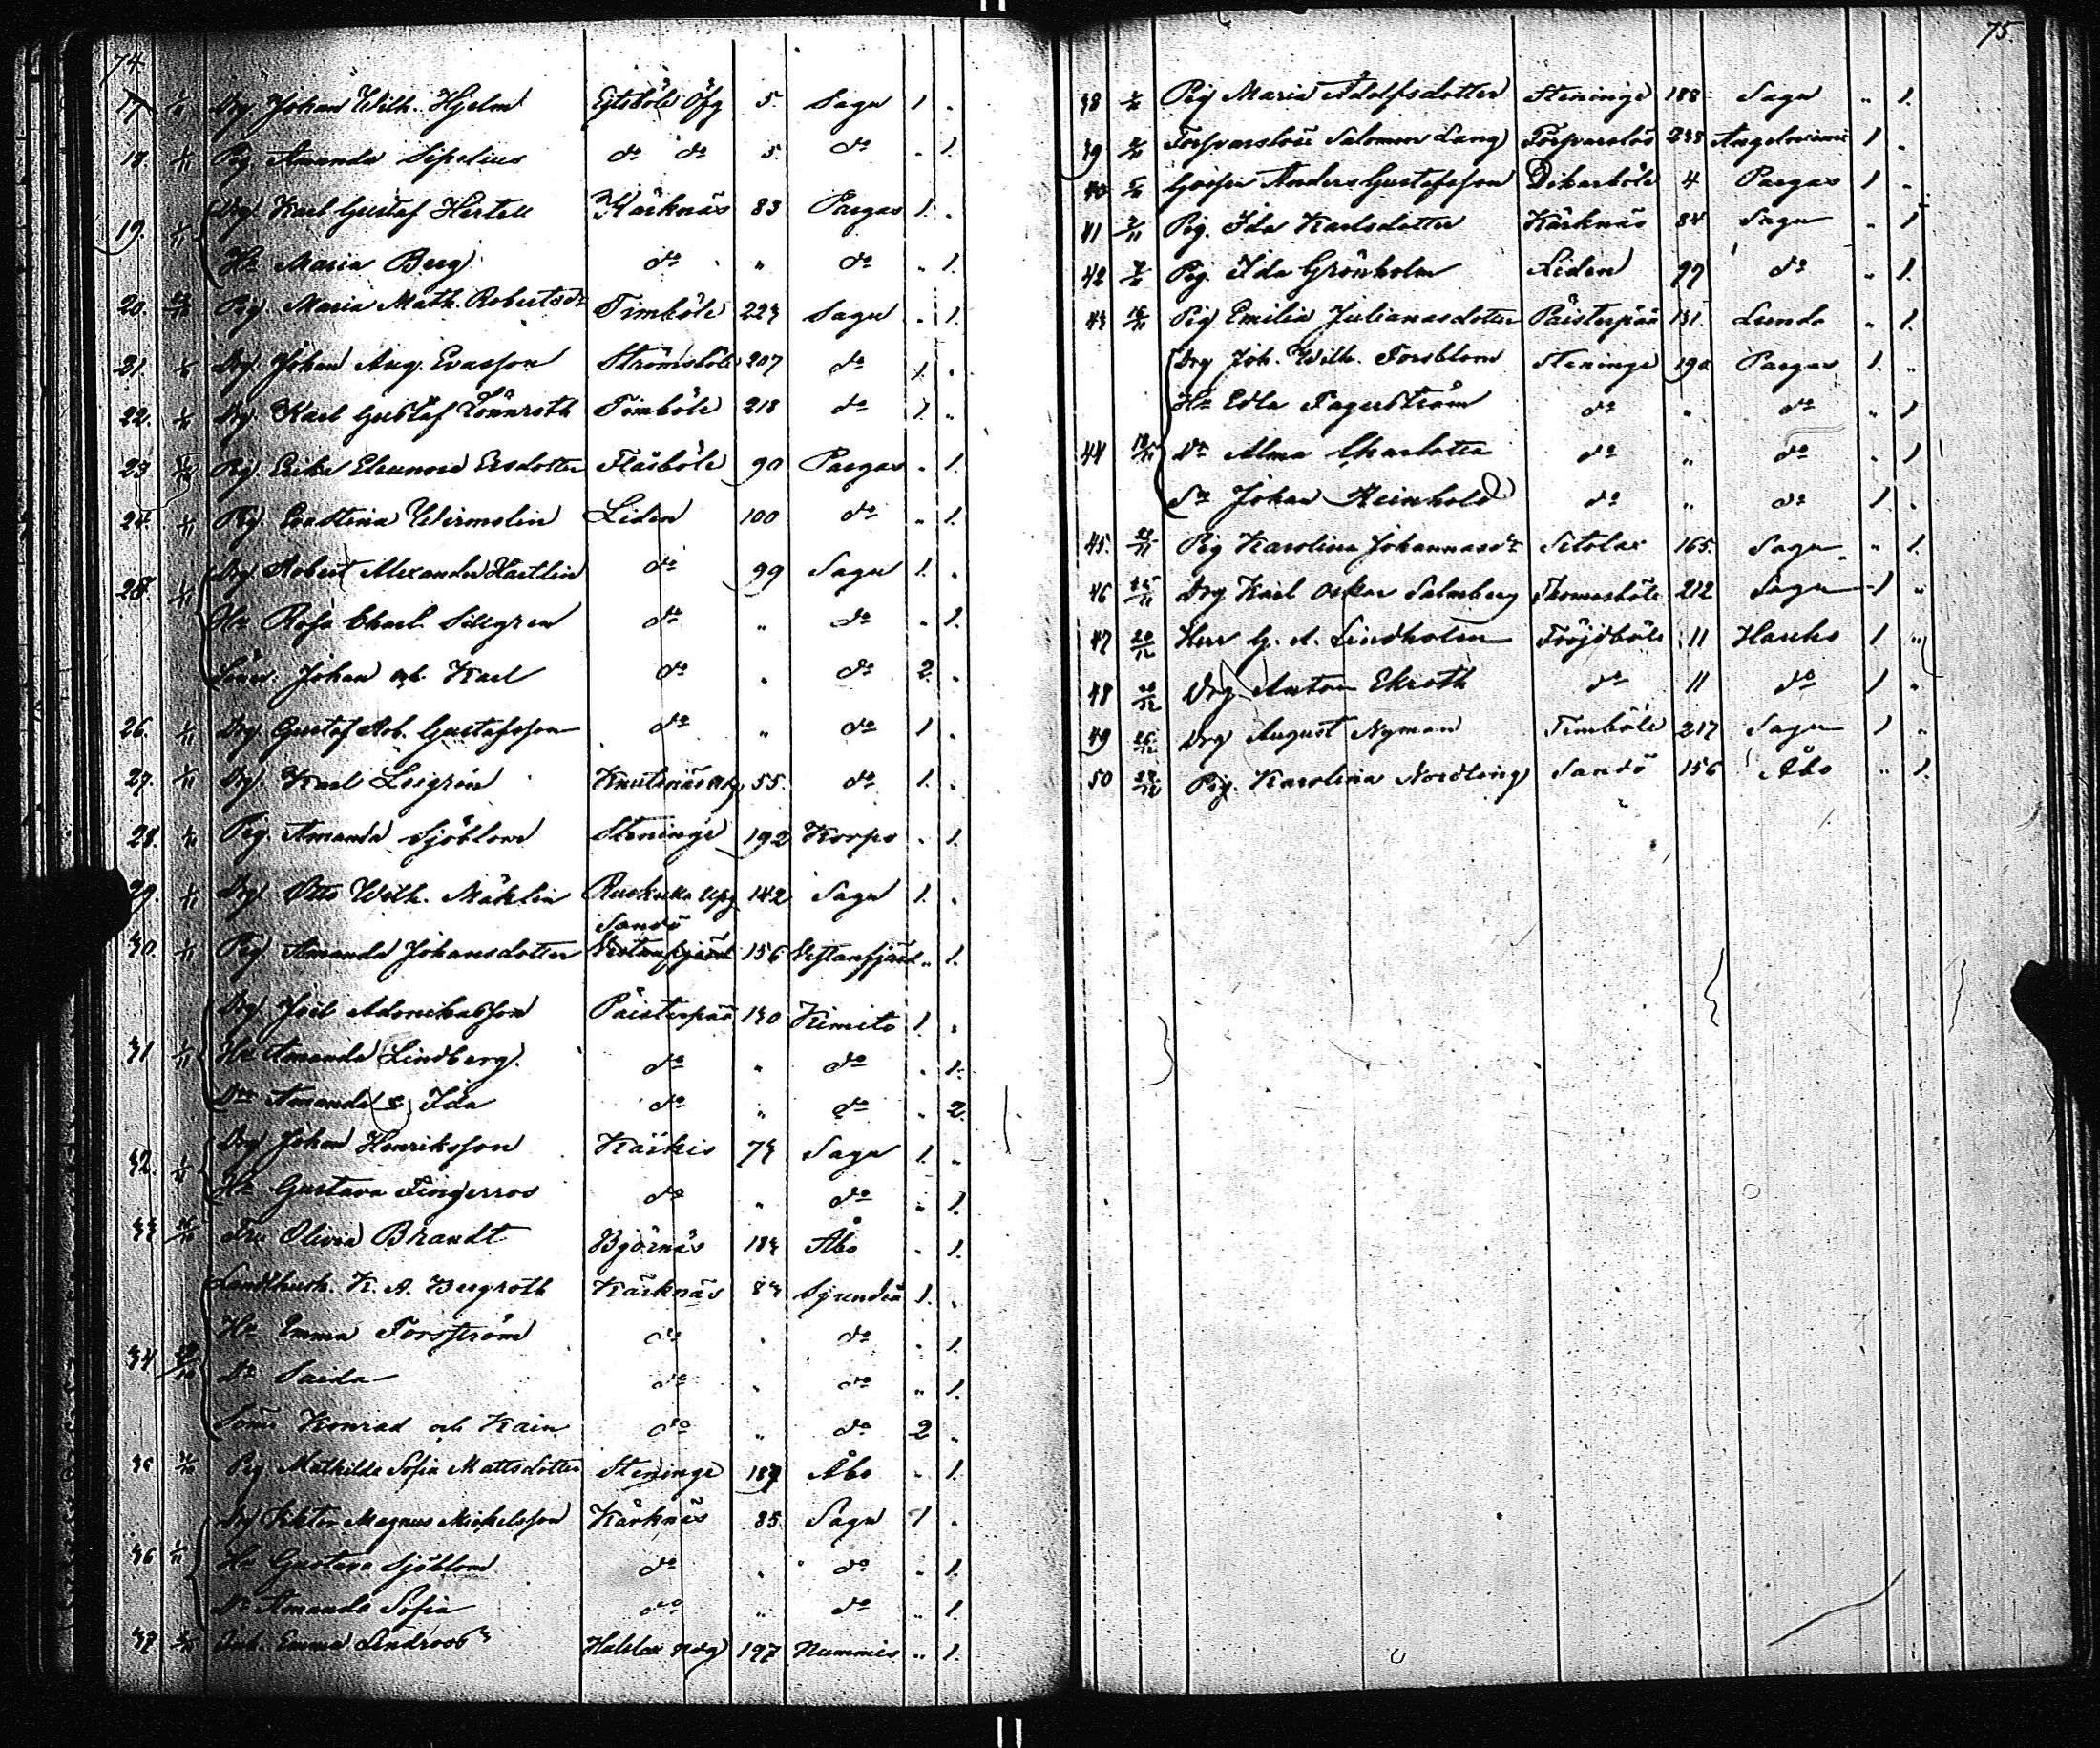 74
17 Drg Johan Wilh. Hjelm Gesteböle Öfg 5. Sagu 1 "
18. 1/11 Pig. Amanda Sipelius do do 5. do " 1.
19. 1/11 Drg. Karl Gustaf Hertell Kärknäs 83 Pargas 1. "
Hu Maria Berg do " do " 1.
20. Pig. Maria Math. Robertsdr Timböle 223 Sagu " 1.
21. Drg Johan Aug. Evasson Strömsböle 207 do 1. "
22. Drg Karl Gustaf Lönnroth Timböle 218 do 1. "
23 Pig Erika Eleonora Ersdotter Flasböle 90 Pargas " 1.
24. 1/11 Pig. Evastina Wirmolin Liden 100 do " 1.
25. 1/11 Drg Robert Alexander Hästlin do 99 Sagu 1. "
Hu Rosa Charl. Sillgren do " do " 1.
Söner Johan och Karl do " do 2. "
26. 1/11 Drg. Gustaf Rob. Gustafsson do " do 1 "
27. 1/11 Drg. Karl Leegrén Knutsnäs 55. do 1. "
28. Pig. Amanda Sjöblom Steninge 192 Korpo " 1.
29. 1/11 Drg Otto Wilh. Mäklin Ruskulla Upg 142 Sagu 1. "
Sandö
30. 1/11 Pig Amanda Johansdotter Vestanfjärd 156 Vestanfjärd " 1.
Drg Joel Adonikasson Päisterpää 130 Kimito 1. "
31 1/11 Hu Amanda Lindberg. do " do " 1.
Drr Amanda & Ida do " do " 2.
32. Drg Johan Henriksson Kärkis 73 Sagu 1. "
Hu Gustava Fingerroos do " do " 1.
33 Fru Olivia Brandt Björnäs 183 Åbo " 1.
Landthush. K. A. Bergroth Kärknäs 83 Sjundeå 1. "
Hu Emma Forsström do " do " 1.
34 Dr Saida do " do " 1.
Söner Konrad och Kain do " do 2 "
35 Pig Mathilda Sofia Mattsdotter Steninge 187 Åbo " 1.
Drg Viktor Magnus Mickelsson Kärknäs 85 Sagu 1 "
36 Hu Gustava Sjöblom do " do " 1.
Dr Amanda Sofia do " do " 1.
37 Emma Lindroos Halslax Ndg 197 Nummis " 1.
75.
38 Pig Maria Adolfsdotter Steninge 188 Sagu " 1.
39 Försvarslöse Salomon Lang Försvarslös 233 Angelniemi 1 "
40 Gossen Anders Gustafsson Dikarböle 4 Pargas 1 "
41 Pig. Ida Karlsdotter Kärknäs 84 Sagu " 1
42 Pig. Ida Grönholm Liden 97 do " 1.
43 Pig Emilia Julianasdotter Päisterpää 131. Lundo " 1.
Drg Joh. Wilh. Forsblom Steninge 190 Pargas 1. "
Hu Edla Fagerström do " do " 1
44 Dr Alma Charlotta do " do " 1
Sn Johan Reinhold do " do 1. "
45. Pig Karolina Johannasdr Sitolax 165. Sagu " 1.
46 Drg Karl Oskar Salmberg Thomasböle 212 Sagu 1 "
47 20/12 Herr G. A. Lindholm Fröjdböle 11 Hauho 1 "
48 20/12 Drg Anton Ekroth do 11 do 1 "
49 Drg August Nyman Timböle 217 Sagu 1 "
50 Pig. Karolina Nordling Sandö 156 Åbo " 1.